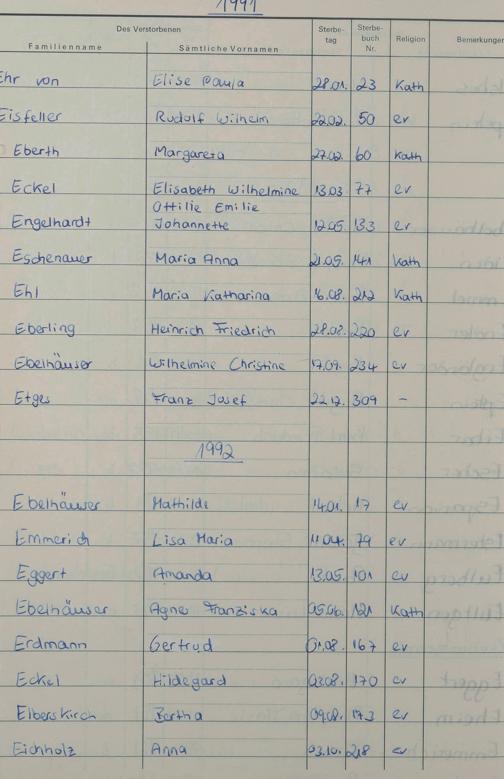 1991
Des Verstorbenen
Familienname Sämtliche Vornamen Sterbe-tag Sterbe-buch Nr. Religion Bemerkungen
Ehr von Elise Paula 28.01. 23 Kath
Eisfeller Rudolf Wilhelm 22.02. 50 ev
Eberth Margareta 27.02. 60 Kath
Eckel Elisabeth Wilhelmine 13.03 77 ev
Ottilie Emilie
Engelhardt Johannette 12.05. 133 ev
Eschenauer Maria Anna 21.05. 141 Kath
Ehl Maria Katharina 16.08. 212 Kath
Eberling Heinrich Friedrich 28.08. 220 ev
Ebelhäuser Wilhelmine Christine 17.09. 234 ev
Etges Franz Josef 22.12. 309 -
1992
Ebelhäuser Mathilde 14.01. 17 ev
Emmerich Lisa Maria 11.04. 79 ev
Eggert Amanda 13.05. 101 ev
Ebelhäuser Agnes Franziska 05.06. 121 Kath
Erdmann Gertrud 01.08. 167 ev
Eckel Hildegard 03.08. 170 ev
Elberskirch Bertha 09.08. 173 ev
Eichholz Anna 03.10. 218 ev